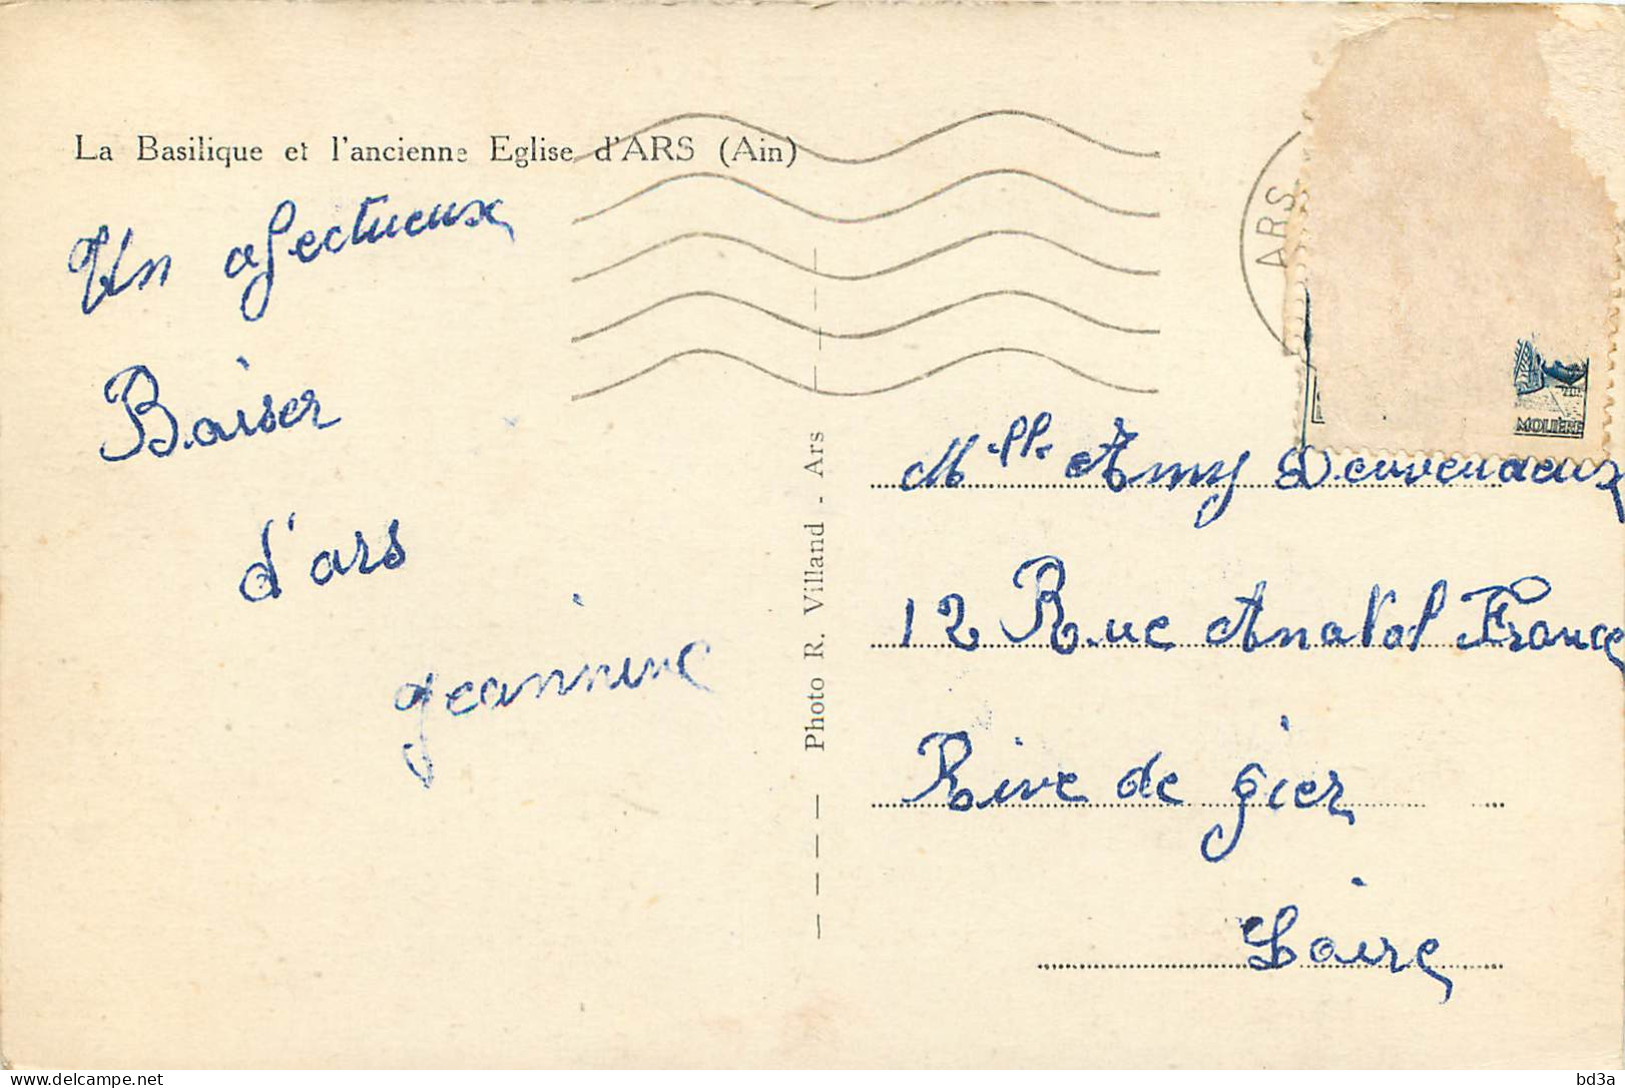 La Basilique et l'ancienne Eglise d'ARS (Ain)
Un afectueux
Baiser
d'ars
Jeannine
Photo R. Villand - Ars
ARS
MOLIÈRE
Mlle Amy
12 Rue Anatol France
Rive de gier
Loire
delcampe.net
bd3a